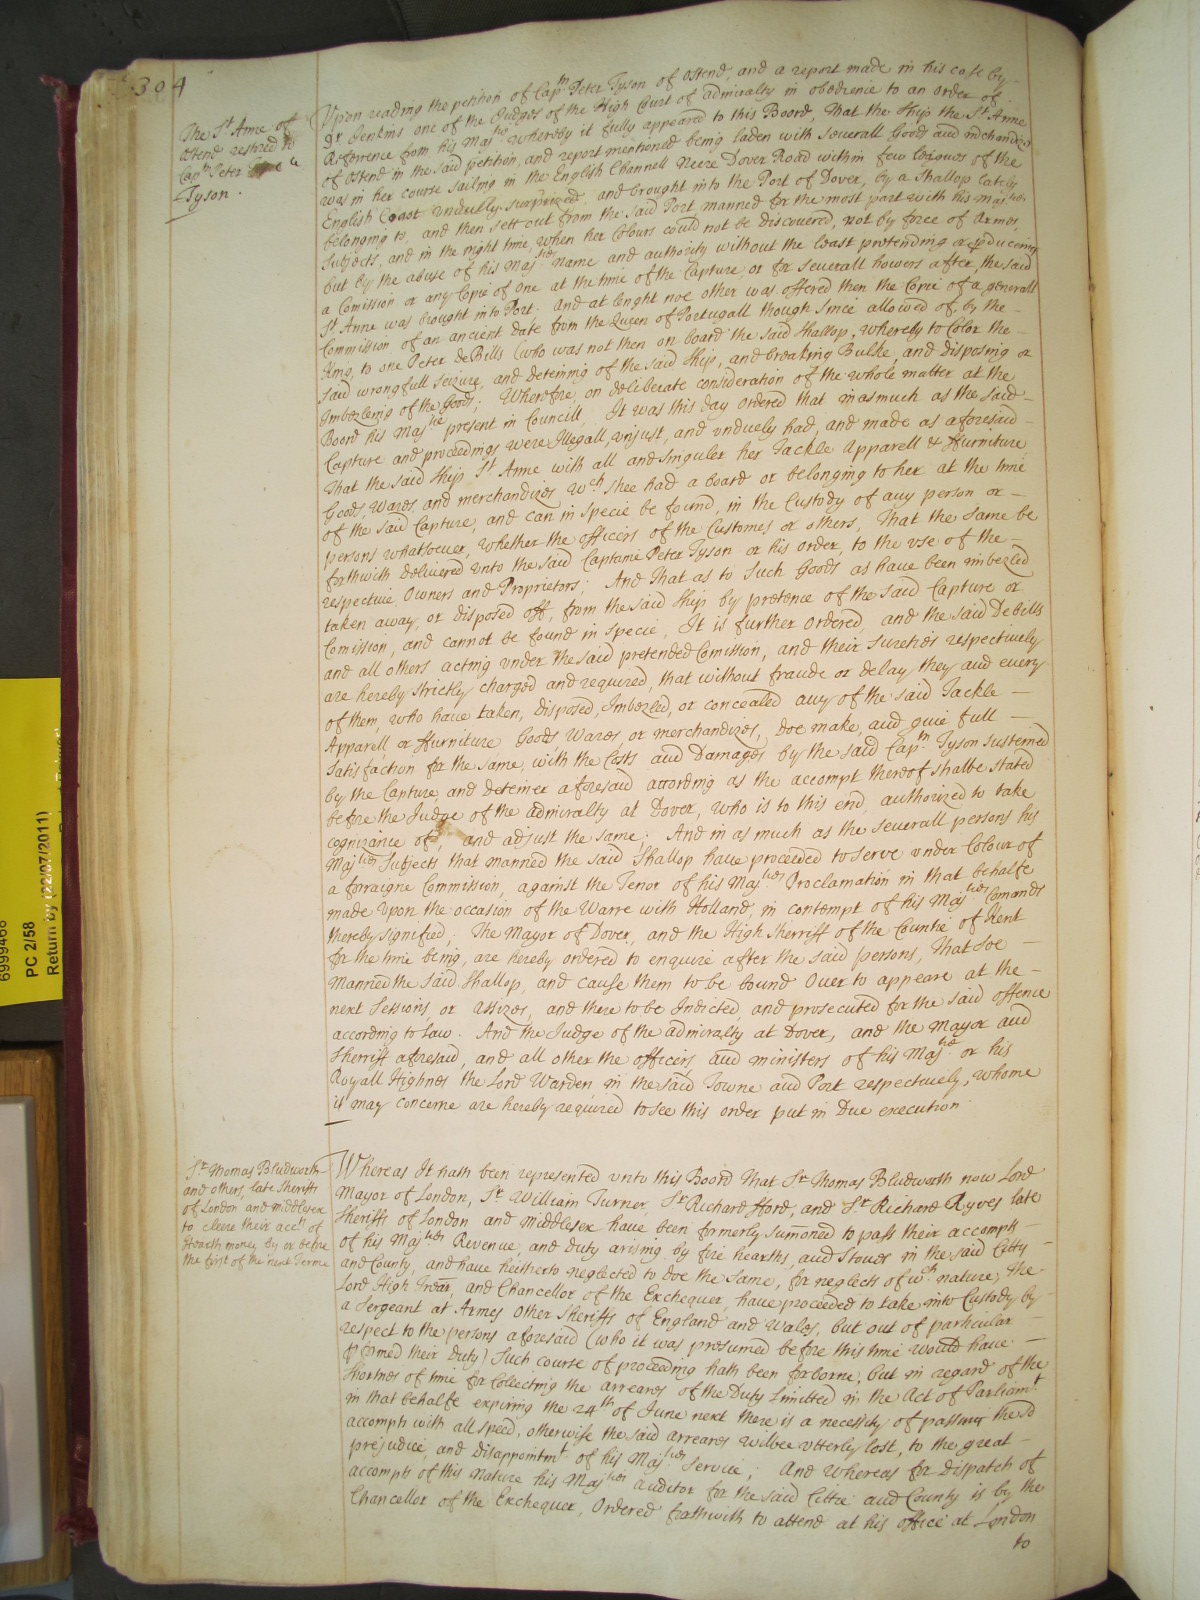 304
The St Anne of
Ostend restored to
Capn Peter
Tyson.
Upon reading the petition of Captn Peter Tyson of Ostend, and a report made in his case by
Dr Jenkins one of the Judges of the High Court of Admiralty in obedience to an order of
Reference from his Majtie whereby it fully appeared to this Boord, That the ship the St Anne
of Ostend in the said petition, and report mentioned being laden with severall Goods and mchandizs
was in her course sailing in the English Channell Neere Dover Road within few Leagues of the
English Coast unduelly surprized, and brought into the Port of Dover, by a Shallop lately
belonging to, and then sett out from the said Port manned for the most part with his Majties
Subjects, and in the night time, when her Colours could not be discovered, not by force of Armes,
but by the abuse of his Majties name and authority without the least pretending or pducing
a Comission or any Copie of one at the time of the Capture or for severall howers after, the said
St Anne was brought into Port. And at lenght noe other was offered then the Copie of a generall
Commission of an ancient date from the Queen of Portugall though since allowed of, by the -
King, to one Peter deBills (who was not then on board the said Shallop, whereby to Color the -
said wrongfull seizure, and deteining of the said ship, and breaking Bulke, and disposing or
Imbezleing of the Goods; Wherefore, on deliberate consideration of the whole matter at the
Boord his Majtie present in Councill, It was this day ordered that inasmuch as the said -
Capture and proceedings were Illegall, unjust, and unduely had, and made as aforesaid -
That the said ship St Anne with all and singuler her Tackle Apparell & ffurniture
Goods, Wares, and merchandizes wch shee had a board or belonging to her at the time
of the said Capture, and can in specie be found, in the Custody of any person or -
persons whatsoever, whether the officers of the Customes or others, That the same be
forthwith delivered unto the said Captaine Peter Tyson or his order, to the use of the -
respective Owners and Proprietors; And That as to such Goods as have been imbezled
taken away, or disposed off, from the said ship by pretence of the said Capture or
Comission, and cannot be found in specie, It is further Ordered, and the said De bills
and all others acting under the said pretended Comission, and their sureties respectively
are hereby strictly charged and required, that without fraude or delay they and every
of them, who have taken, disposed, Imbezled, or concealed any of the said Tackle -
Apparell or ffurniture Goods Wares or merchandizes, doe make, and give full -
satisfaction for the same, with the Costs and Damages by the said Captn Tyson susteined
by the Capture, and deteiner aforesaid according as the accompt thereof shalbe stated
before the Judge of the Admiralty at Dover, who is to this end, authorized to take
cognizance of, and adjust the same; And in as much as the severall persons his
Majties Subjects that manned the said Shallop have proceeded to serve under Colour of
a forraigne Commission, against the Tenor of his Majties Proclamation in that behalfe
made upon the occasion of the Warre with Holland, in contempt of his Majties Comands
thereby signified; The Mayor of Dover, and the High Sherriff of the Countie of Kent
for the time being, are hereby ordered to enquire after the said persons, That soe -
Manned the said Shallop, and cause them to be bound over to appeare at the -
next Sessions, or Assizes, and there to be Indicted, and prosecuted for the said offence
according to Law. And the Judge of the Admiralty at Dover, and the Mayor and
Sherriff aforesaid, and all other the officers and ministers of his Majtie or his
Royall Highnes the Lord Warden in the said Towne and Port respectively, whome
it may concerne are hereby required to see this order put in due execution.
Sr Thomas Bludworth
and others, late Sheriffs
of London and middlesex
to cleere their accts of
Hearth money by or before
the first of the next Terme
Whereas It hath been represented unto this Boord That Sr Thomas Bludworth now Lord
Mayor of London, Sr William Turner, Sr Richard fford, and Sr Richard Ryves late
Sheriffs of London and middlesex have been formerly sumoned to pass their accompts -
of his Majties Revenue, and duty arising by fire hearths, and Stoves in the said Citty
and County, and have heitherto neglected to doe the same, for neglects of wch nature, the
Lord High Trear, and Chancellor of the Exchequer, have proceeded to take into Custody by
a Sergeant at Armes other Sheriffs of England and Wales, but out of particular -
respect to the persons aforesaid (who it was presumed before this time would have -
pformed their Duty) Such course of proceeding hath been forborne, but in regard of the
shortnes of time for Collecting the arreares of the Duty Limitted in the Act of Parliamt
in that behalfe expiring the 24th of June next there is a necessity of passing the sd
accompts with all speed, otherwise the said arreares wilbee utterly lost, to the great -
prejudice, and disappointmt of his Majties service; And whereas for dispatch of
accompts of this Nature his Majties auditor for the said Cittie and County is by the
Chancellor of the Exchequer, Ordered forthwith to attend at his office at London
to
6999468
PC 2/58
Return by (22/07/2011)